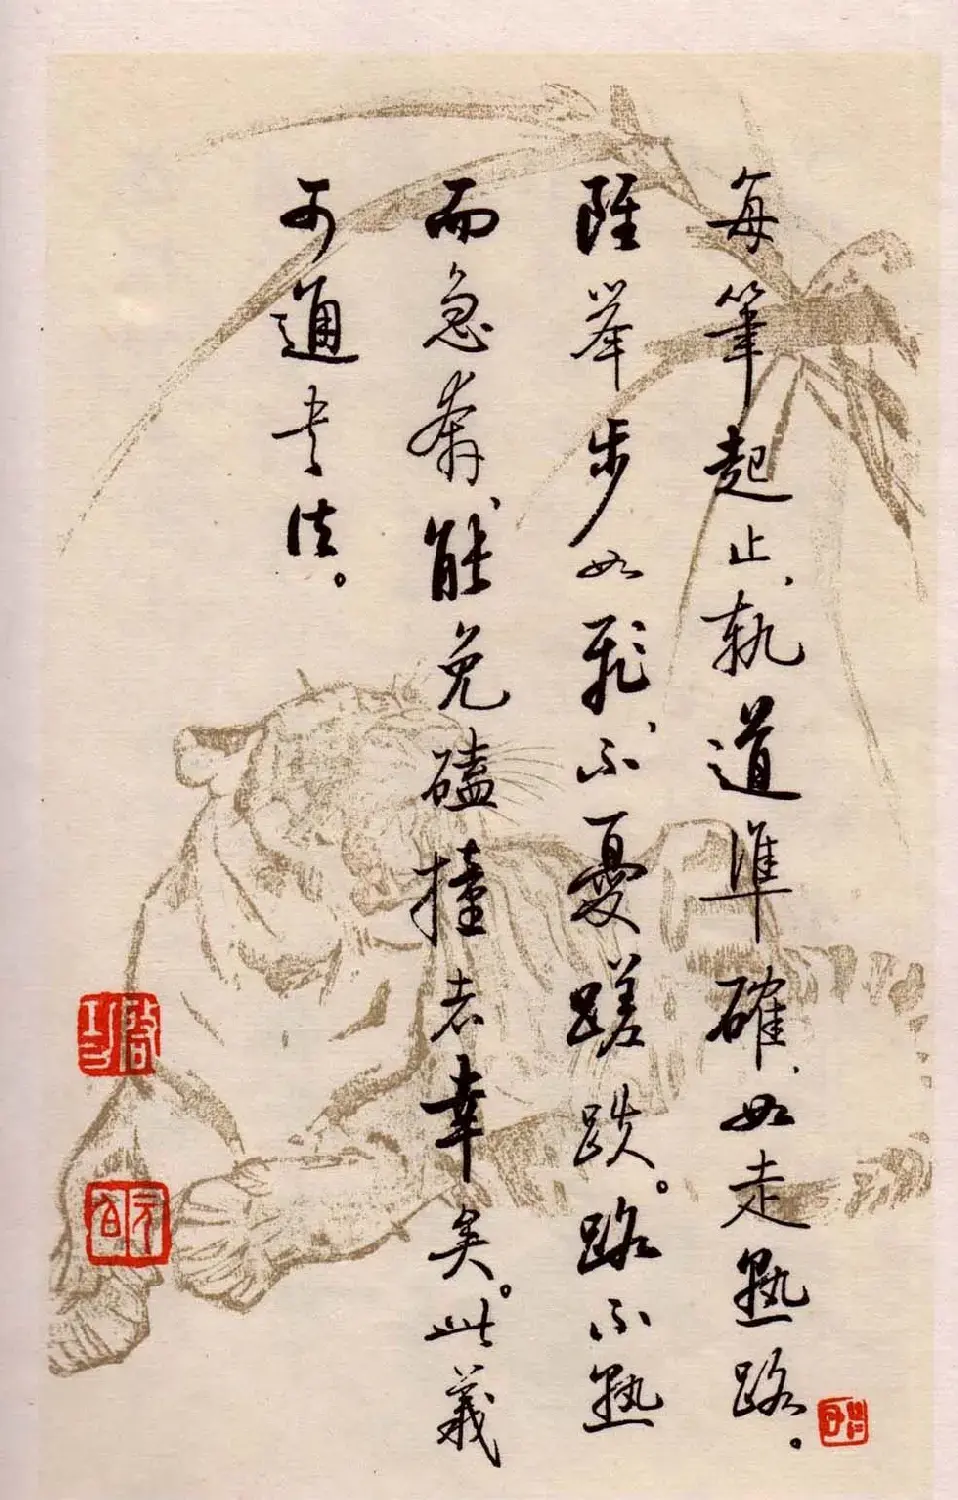 每筆起止、軌道準確、如走熟路。
雖舉步如飛、不憂蹉跌。路不熟
而急奔、能免磕撞者幸矣。此義
可通書法。